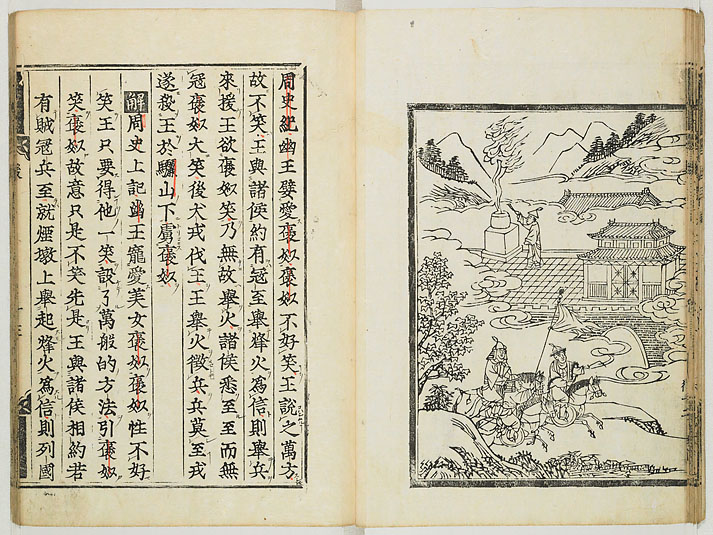 周史紀幽王嬖愛褒姒褒姒不好笑王說之萬方
故不笑王與諸侯約有寇至舉烽火爲信則舉兵
來援王欲褒姒笑乃無故舉火諸侯悉至至而無
寇褒姒大笑後犬戎伐王王舉火徵兵兵莫至戎
遂殺王於驪山下虜褒姒
解周史上記幽王寵愛美女褒姒褒姒性不好
笑王只要得他一笑設了萬般的方法引褒姒
笑褒姒故意只是不笑先是王與諸侯相約若
有賊寇兵至就煙墩上舉起烽火爲信則列國